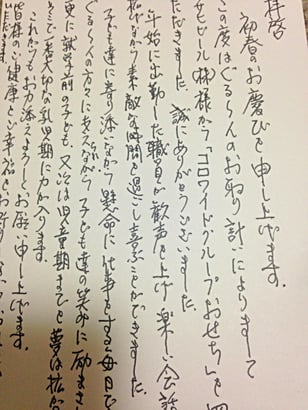 拝啓
初春のお慶びを申し上げます。
この度はぐるーんのお取り計いによりまして
ビール(株)様から「コロワイドグループおせち」を四
ただきました。誠にありがとうございました。
年始に出勤した職員が歓声を上げ楽しい会話
びながら素敵な時間を過し喜ぶことができました。
子ども達に寄り添いながら懸命に仕事をする毎日で
ぐるーんの方々に支えられながら子ども達の笑みに励まさ
更に就学前の子ども、又いは児童期までと夢は拡が
そこで大切な乳児期に力が入ります。
これからもお力添えよろしくお願い申し上げます。
皆様のご健康とご幸福をお